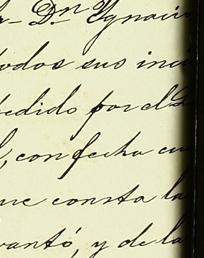 Dn Ygnacio
todos sus inci
pedido por el
, con fecha cu
ue consta la
vantó, y de la